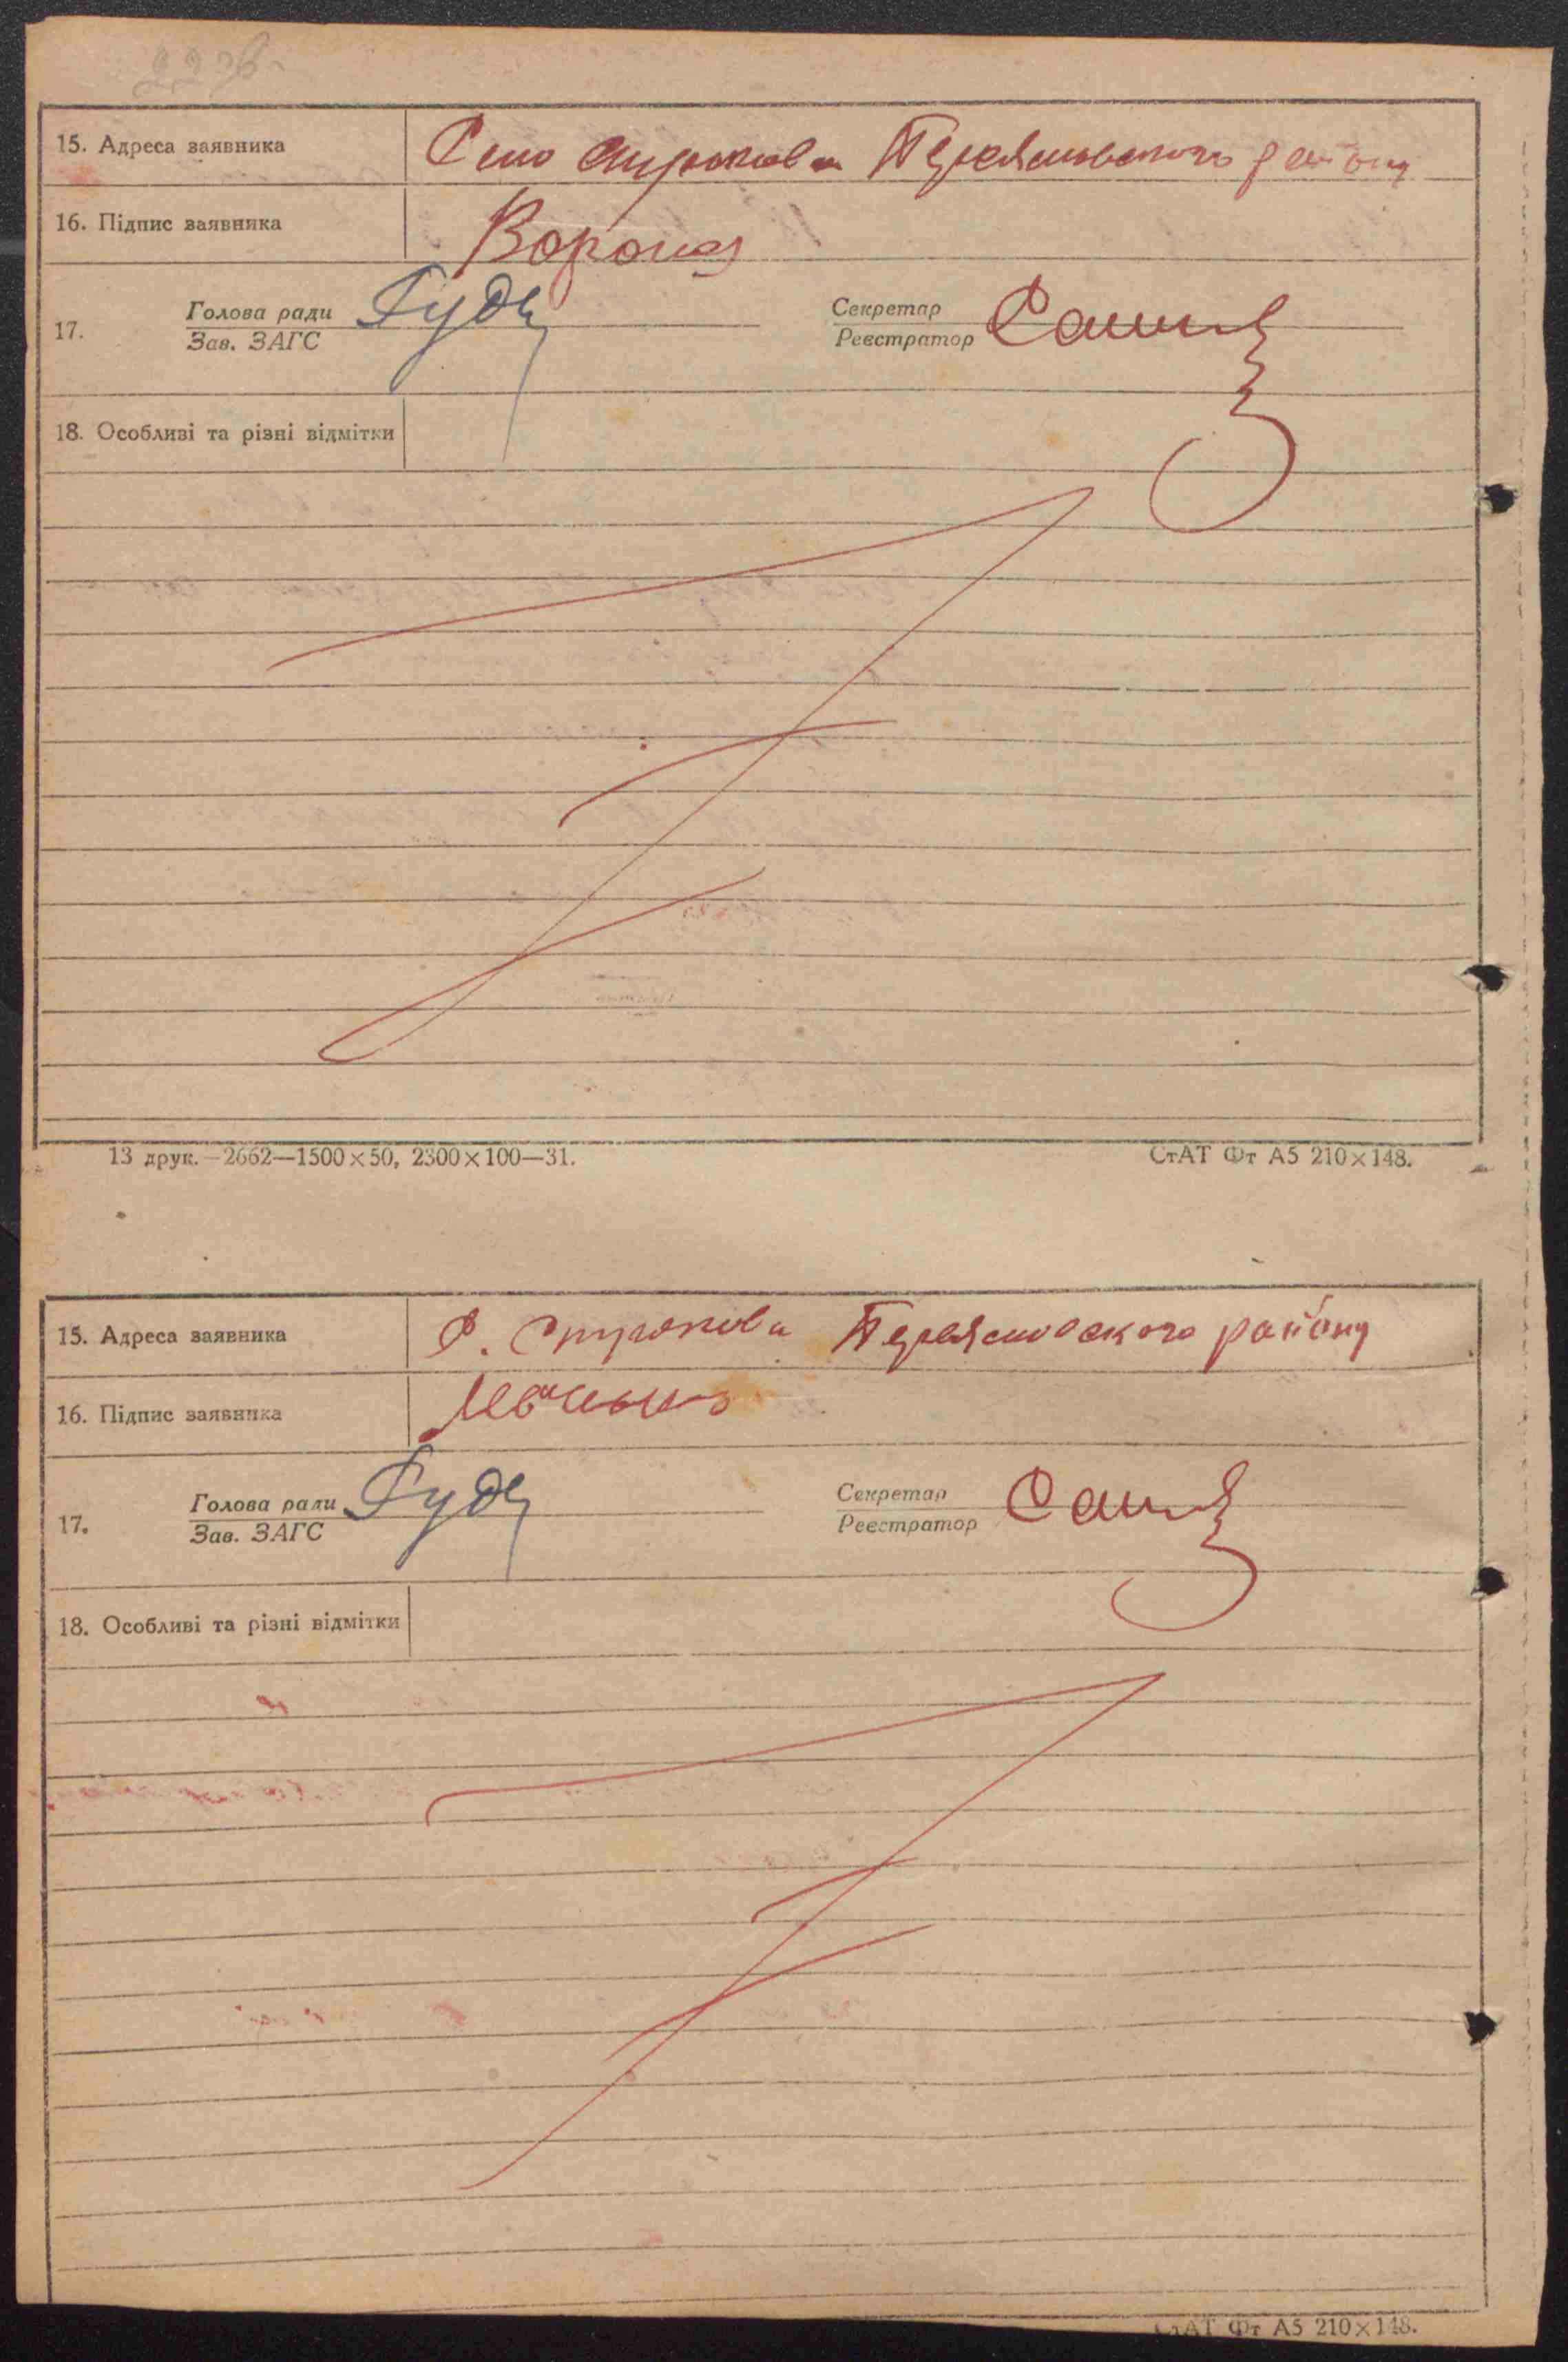 15. Адреса заявника Село Струкова Переяславского району
16. Підпис заявника Ворона
17. Голова ради Гуд Секретар
Зав. ЗАГС Реєстратор
18. Особливі та різні відмітки
13 друк.—2662—1500×50, 2300×100—31. СтАТ Фт А5 210×148.
15. Адреса заявника С. Струкова району
16. Підпис заявника
17. Голова ради Гуд Секретар
Зав. ЗАГС Реєстратор
18. Особливі та різні відмітки
СтАТ Фт А5 210×148.